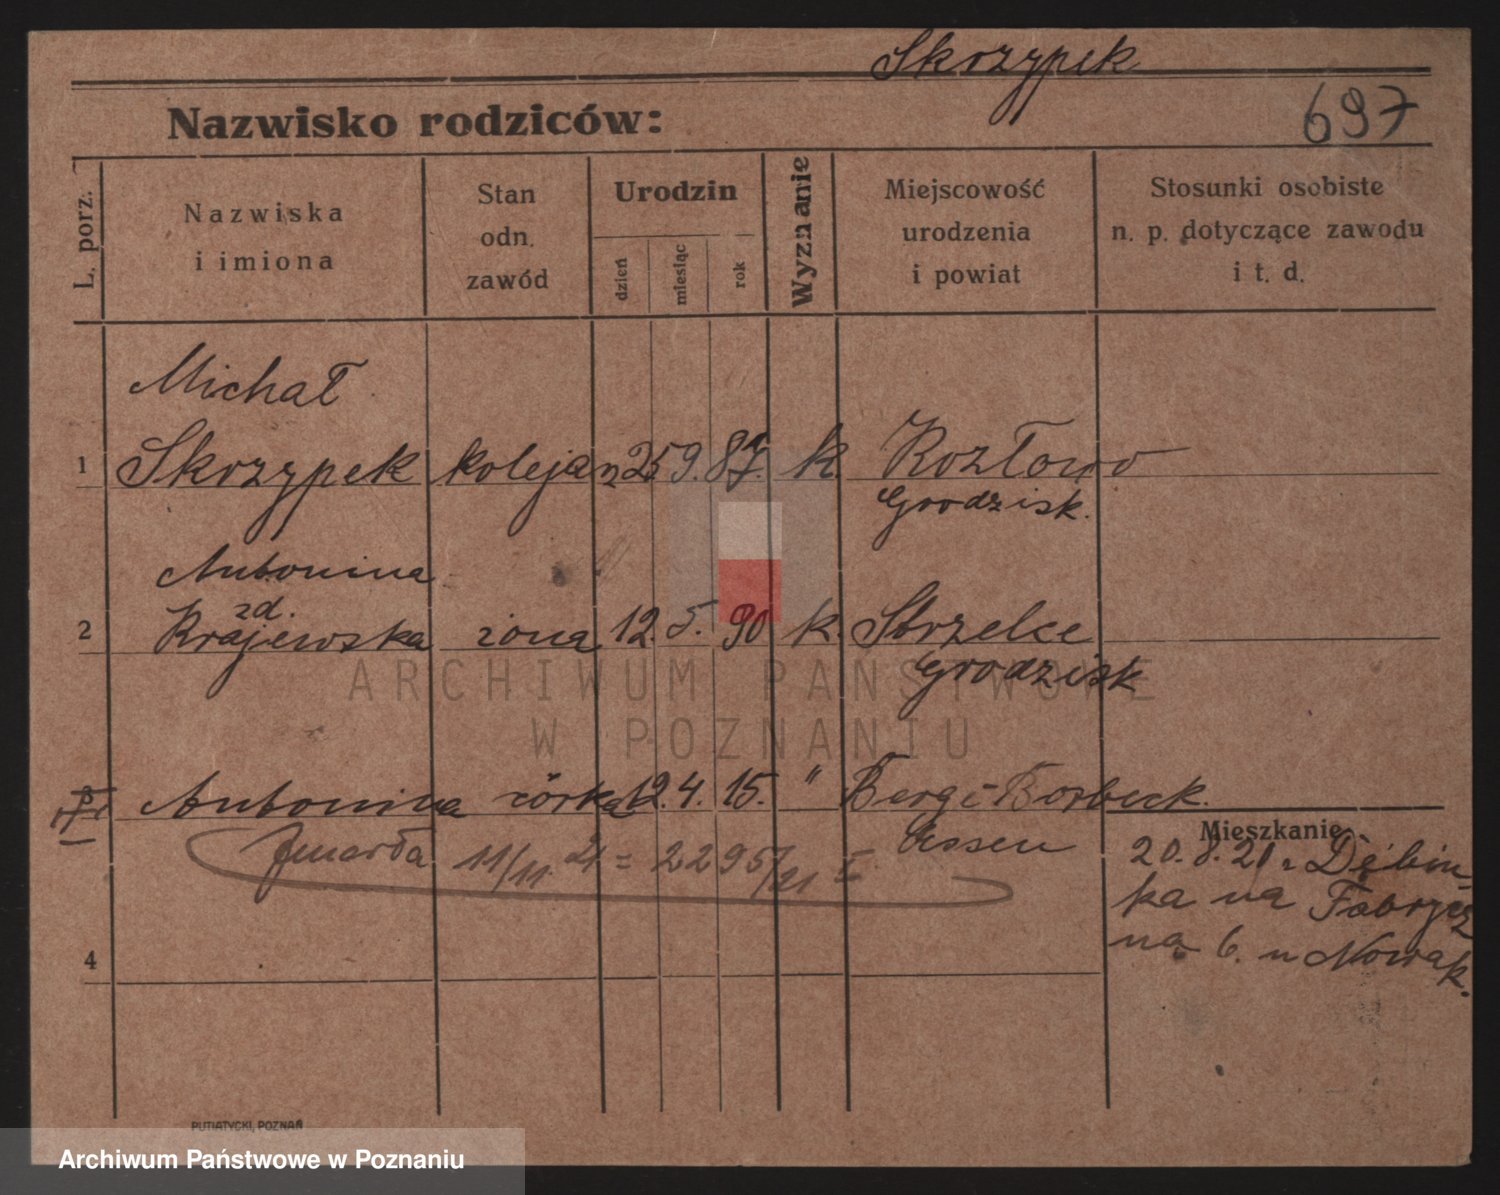 Skrzypek
Nazwisko rodziców:
697
L. porz.
Nazwiska
i imiona
Stan
odn.
zawód
Urodzin
dzień
miesiąc
rok
Wyznanie
Miejscowość
urodzenia
i powiat
Stosunki osobiste
n. p. dotyczące zawodu
i t. d.
Michał
1 Skrzypek kolejarz 25 9. 87. k. Kozłowo
Grodzisk.
Antonina
zd.
2 Krajewska żona 12. 5. 90 k. Strzelce
Grodzisk
ARCHIWUM PAŃSTWOWE
W POZNANIU
3 Antonina córka 12. 4. 15. " Berge-Borbeck.
Essen
Zmarła 11/11. 21 = 2295/21
Mieszkanie
20. 8. 21 z Dębin-
ka na Fabrycz
ną 6. u Nowak.
4
PUTIATYCKI, POZNAŃ
Archiwum Państwowe w Poznaniu